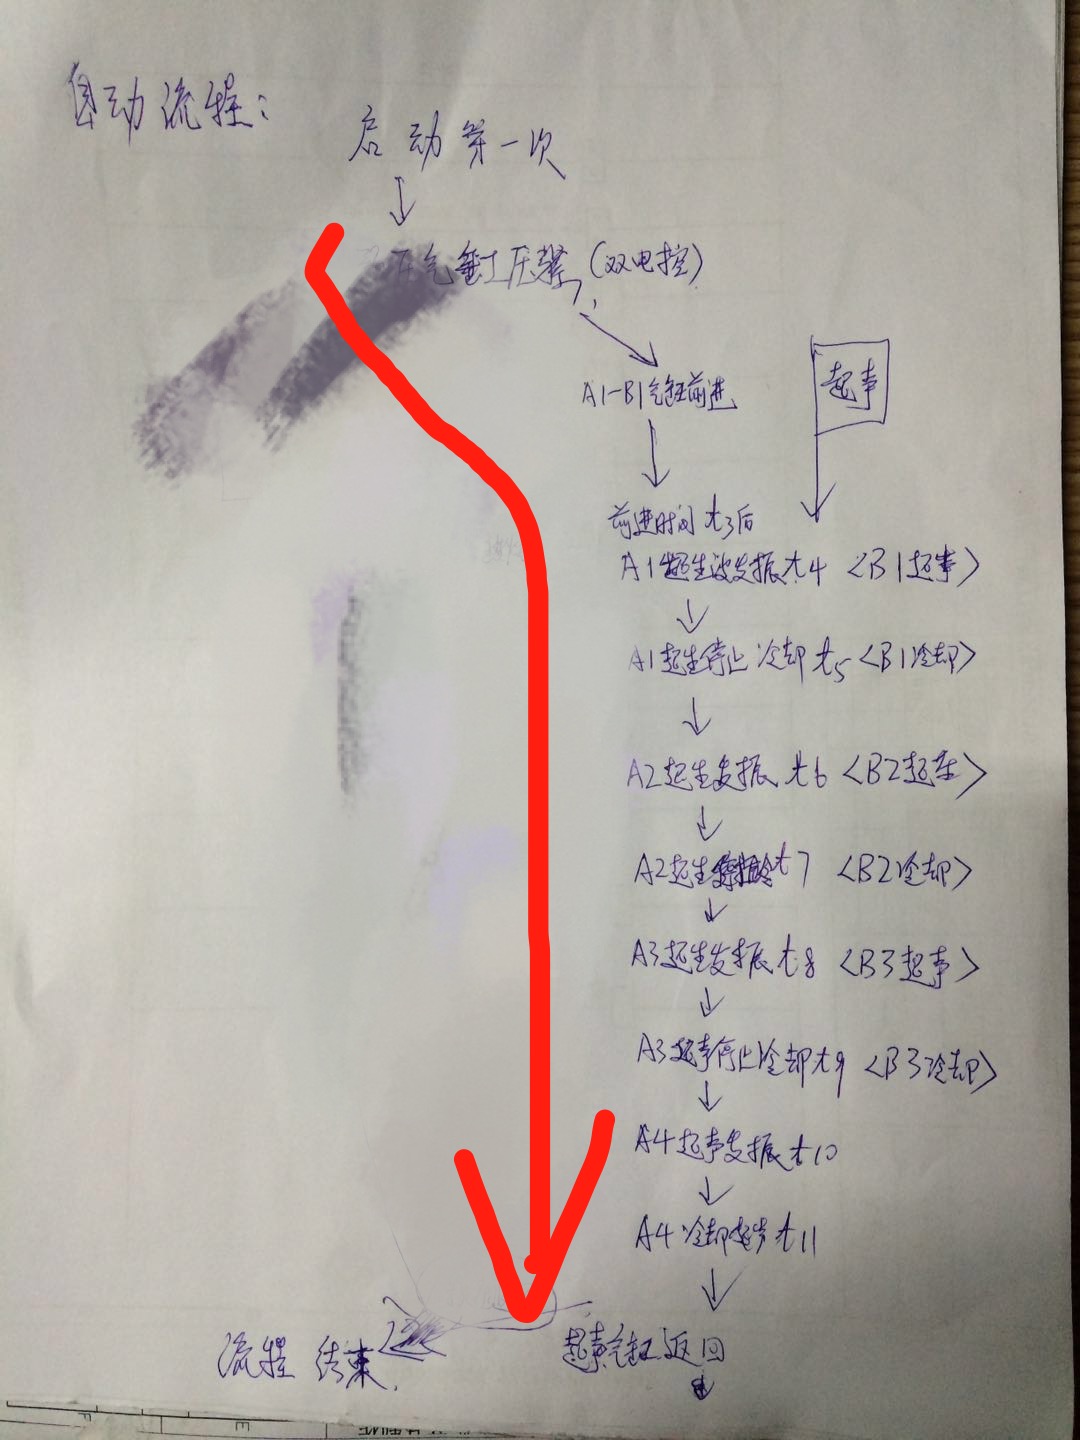 自动流程：
启动第一次
气缸压紧（双电控）
A1-B1气缸前进
超声
前进时间 t3后
A1超声波发振 t4 〈B1超声〉
A1超声停止 冷却 t5 〈B1冷却〉
A2超声发振 t6 〈B2超声〉
A2超声 t7 〈B2冷却〉
A3超声发振 t8 〈B3超声〉
A3超声停止冷却 t9 〈B3冷却〉
A4超声发振 t10
A4冷却超声 t11
超声气缸返回
流程 结束